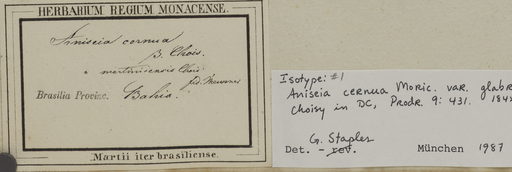 HERBARIUM REGIUM MONACENSE.
Aniseia cernua
β. Chois.
martinicensis Chois
fid. Meissner
Brasilia Provinc. Bahia.
Martii iter brasiliense.
Isotype: #1
Aniseia cernua Moric. var. glabr
Choisy in DC, Prodr. 9: 431. 184
G. Staples
Det. - rev. München 1987